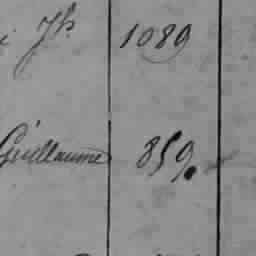 i Jh 1089
Guillaume 859